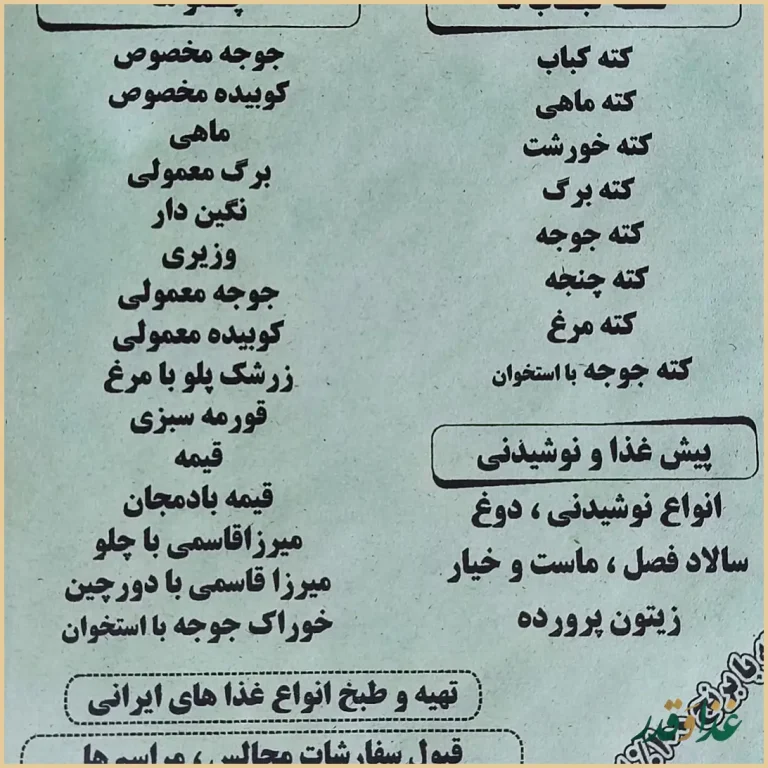 کته کباب
کته ماهی
کته خورشت
کته برگ
کته جوجه
کته چنجه
کته مرغ
کته جوجه با استخوان
پیش غذا و نوشیدنی
انواع نوشیدنی ، دوغ
سالاد فصل ، ماست و خیار
زیتون پرورده
جوجه مخصوص
کوبیده مخصوص
ماهی
برگ معمولی
نگین دار
وزیری
جوجه معمولی
کوبیده معمولی
زرشک پلو با مرغ
قورمه سبزی
قیمه
قیمه بادمجان
میرزاقاسمی با چلو
میرزا قاسمی با دورچین
خوراک جوجه با استخوان
تهیه و طبخ انواع غذا های ایرانی
قبول سفارشات مجالس ، مراسم ها